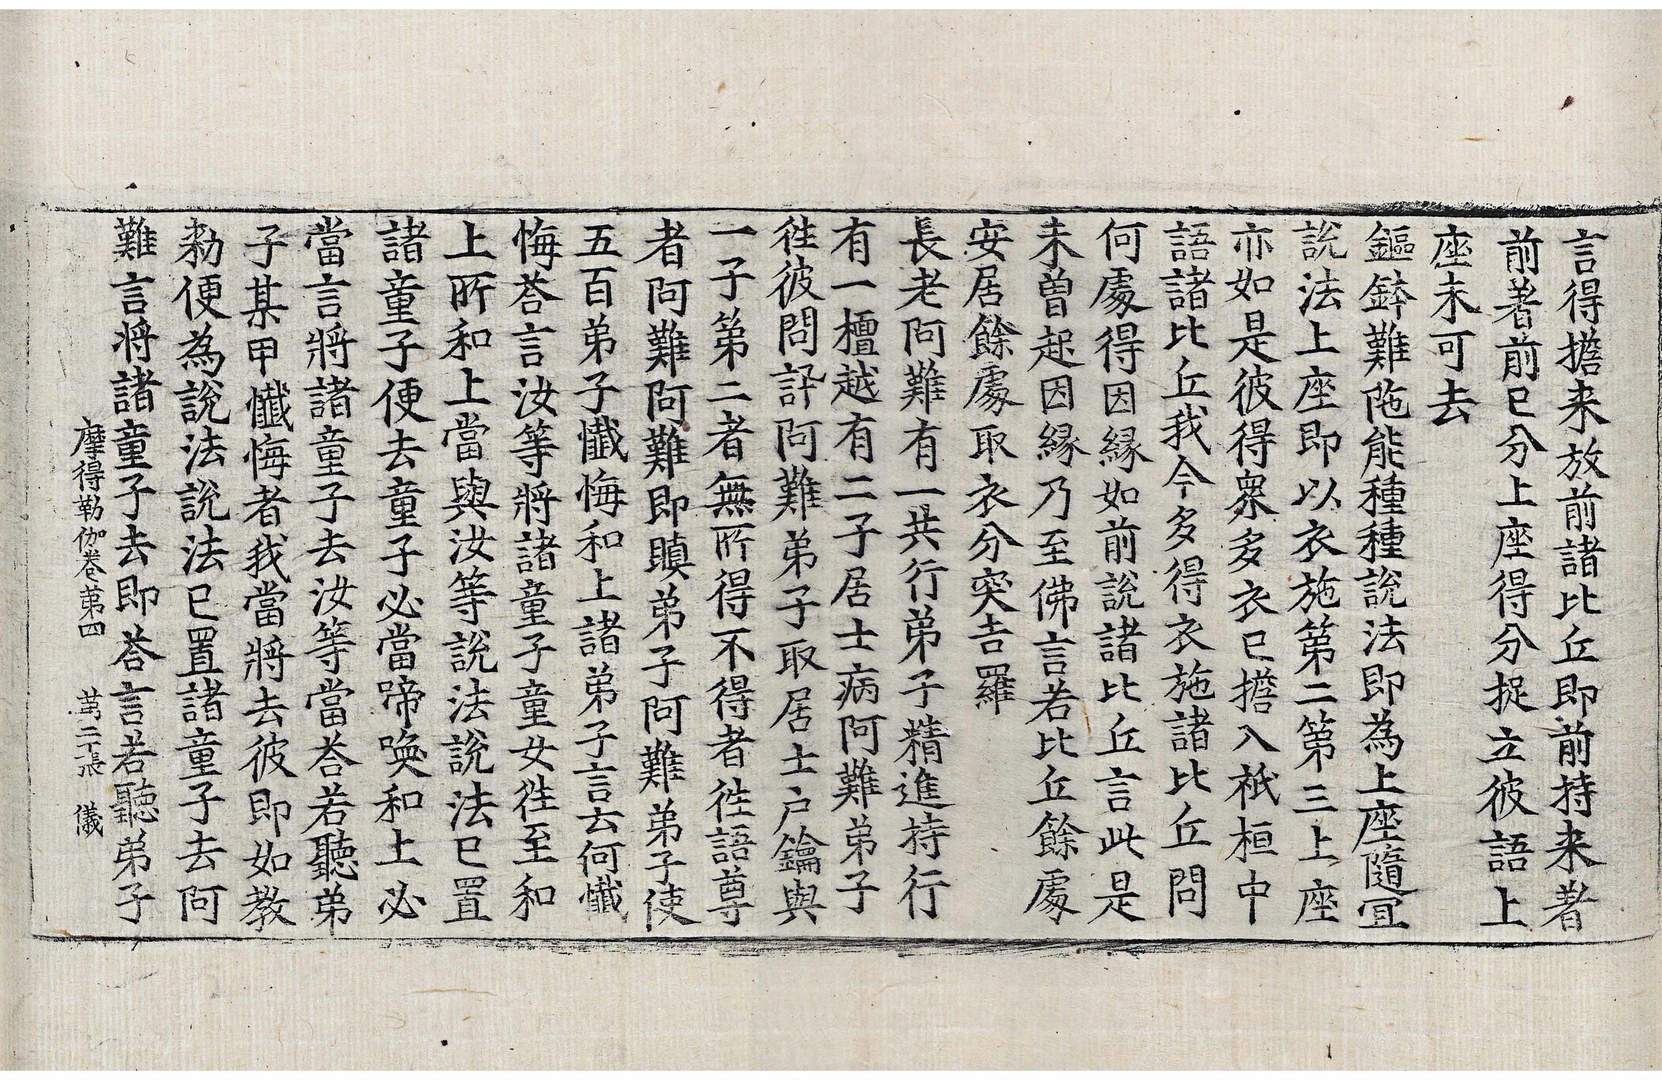 言得擔来放前諸比丘即前持来著
前著前已分上座得分捉立彼語上
座未可去
鏂鉢難陁能種種說法即為上座隨冝
說法上座即以衣施第二第三上座
亦如是彼得衆多衣已擔入祇桓中
語諸比丘我今多得衣施諸比丘問
何處得因縁如前說諸比丘言此是
未曽起因縁乃至佛言若比丘餘處
安居餘處取衣分突吉羅
長老阿難有一共行弟子精進持行
有一檀越有二子居士病阿難弟子
徃彼問訊阿難弟子取居士户鑰與
一子第二者無所得不得者徃語尊
者阿難阿難即瞋弟子阿難弟子使
五百弟子懺悔和上諸弟子言云何懺
悔荅言汝等將諸童子童女徃至和
上所和上當與汝等說法說法已置
諸童子便去童子必當啼喚和上必
當言將諸童子去汝等當荅若聽弟
子某甲懺悔者我當將去彼即如教
勑便為說法說法已置諸童子去阿
難言將諸童子去即荅言若聽弟子
摩得勒伽卷第四 苐二十張 儀